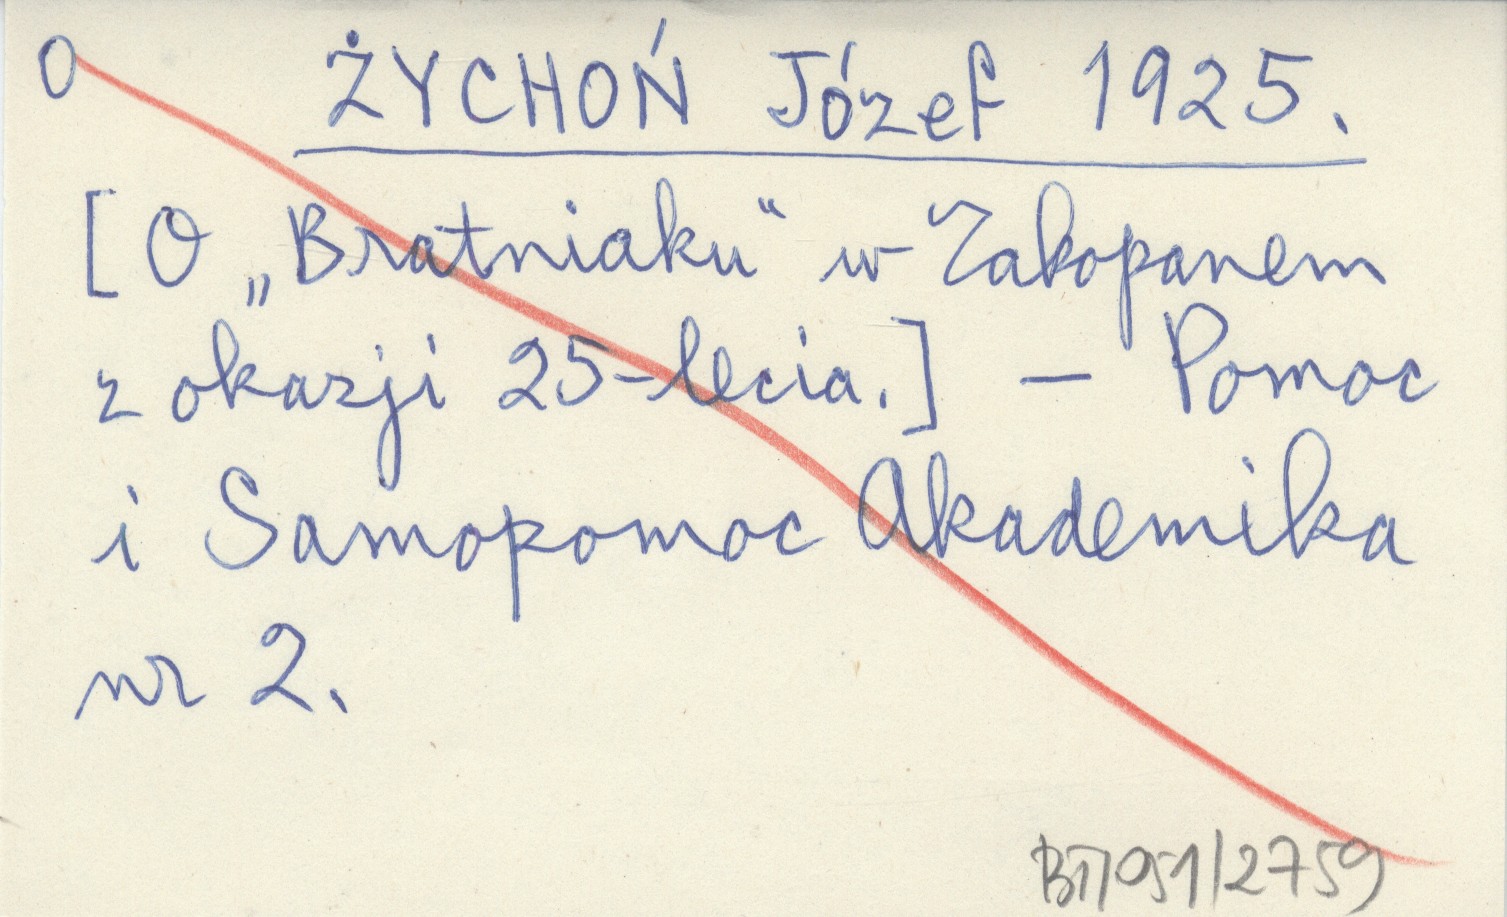 O ŻYCHOŃ Józef 1925.
[O „Bratniaku“ w Zakopanem
z okazji 25-lecia.] — Pomoc
i Samopomoc Akademika
nr 2.
BT/951/2759